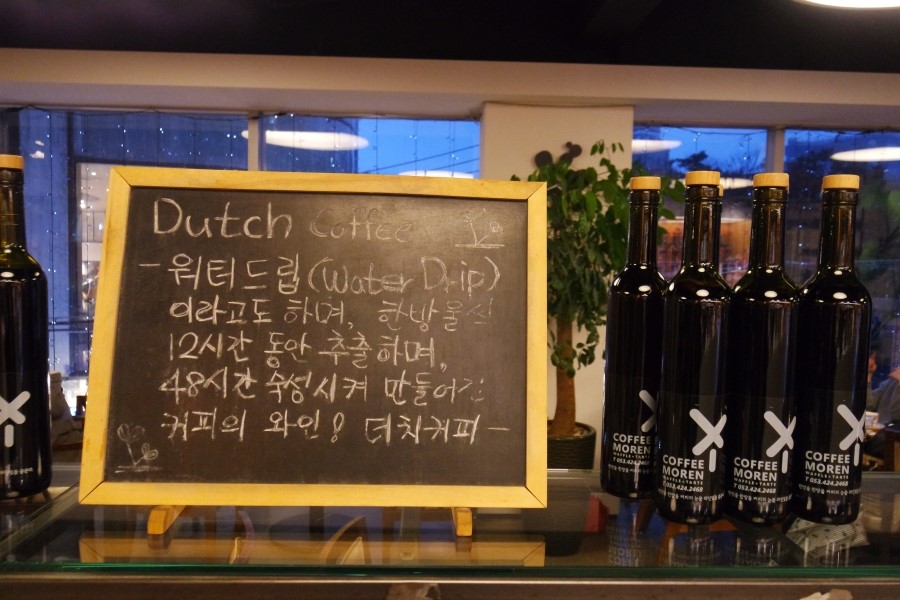 Dutch Coffee
- 워터드립(Water Drip)
이라고도 하며, 한방울씩
12시간 동안 추출하며,
48시간 숙성시켜 만들어진
커피의 와인! 더치커피 -
COFFEE
MOREN
WAFFLE+TARTE
T 053.424.2468
COFFEE
MOREN
WAFFLE+TARTE
T 053.424.2468
COFFEE
MOREN
WAFFLE+TARTE
T 053.424.2468
COFFEE
MOREN
WAFFLE+TARTE
T 053.424.2468